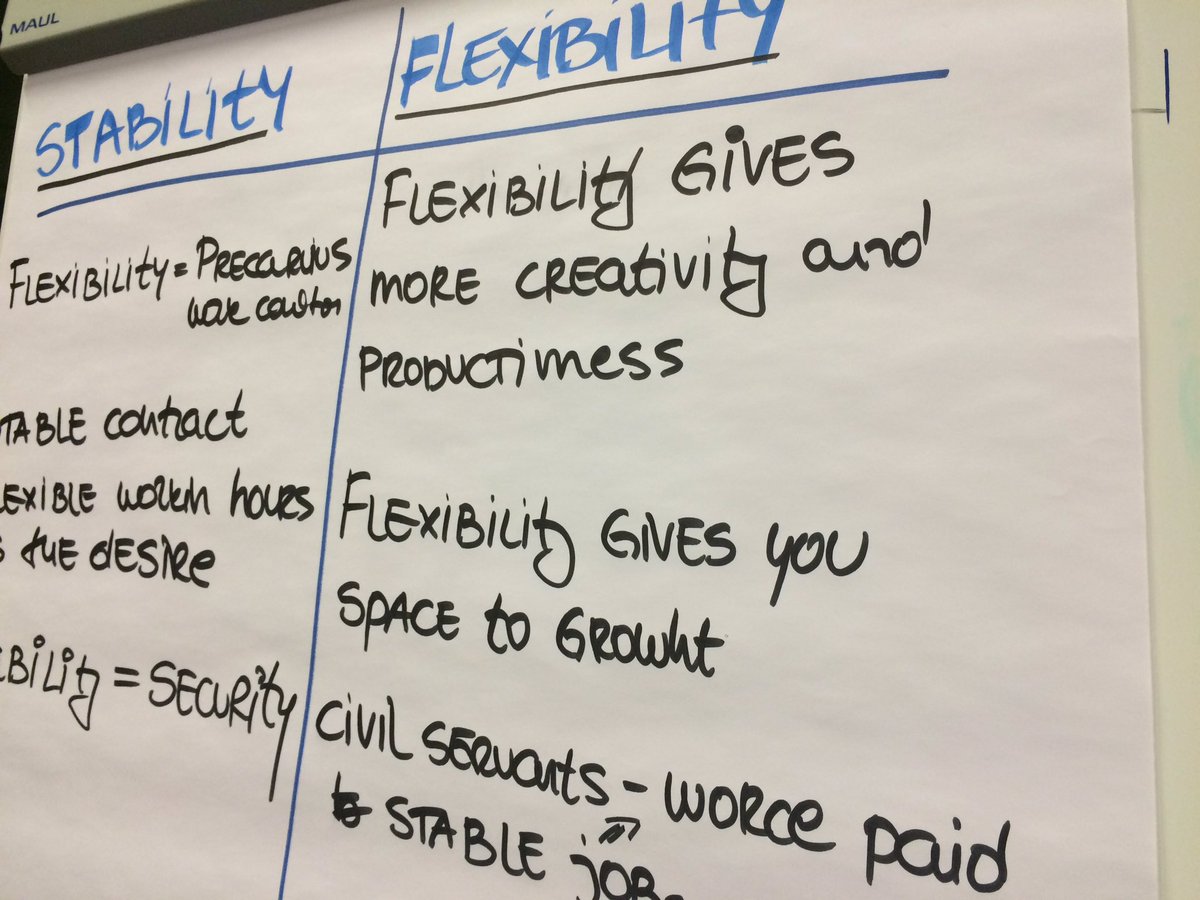 MAUL
STABILITY
FLEXIBILITY = PRECARIUS
TABLE contract
LEXIBLE workin hours
THE DESIRE
BILITY = SECURITY
FLEXIBILITY
FLEXIBILITY GIVES
MORE CREATIVITY and
PRODUCTIMESS
FLEXIBILITY GIVES YOU
SPACE to GROWHT
CIVIL SERVANTS - WORCE paid
STABLE JOB